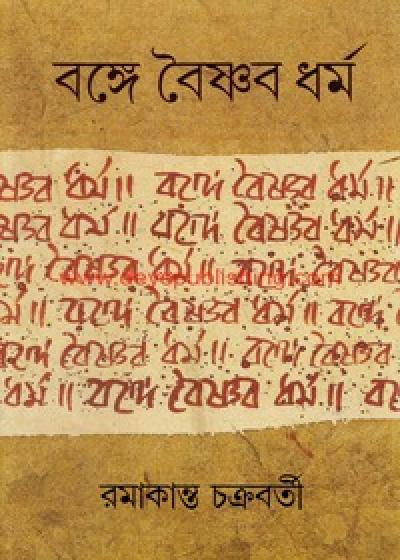 বঙ্গে বৈষ্ণব ধর্ম
বৈষ্ণব ধর্ম॥ বঙ্গে বৈষ্ণব ধর্ম॥
বৈষ্ণব ধর্ম॥ বঙ্গে বৈষ্ণব ধর্ম॥
বঙ্গে বৈষ্ণব ধর্ম॥ বঙ্গে বৈষ্ণব
ধর্ম॥ বঙ্গে বৈষ্ণব ধর্ম॥ বঙ্গে
বঙ্গে বৈষ্ণব ধর্ম॥ বঙ্গে বৈষ্ণব
ধর্ম॥ বঙ্গে বৈষ্ণব ধর্ম॥
রমাকান্ত চক্রবর্তী